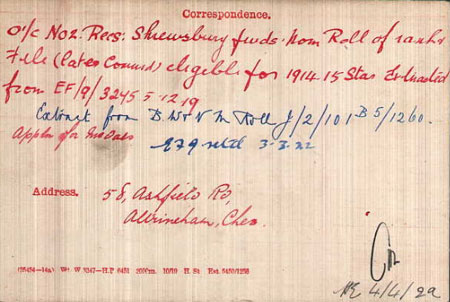 Correspondence.
O/c No2: Recs: Shrewsbury fwds. Nom Roll of ranks &
File (later Commd) eligible for 1914 15 Star Extracted
from EF/9/3245 5.12.19
Extract from B.W & V M Roll J/2/101 B 5/1260.
Appln for medals
979 retd 3.3.22
Address.
58, Ashfield Rd,
Altrincham, Ches.
(25494-14a) Wt W 5347-H.P 8451 200m. 10/19 H. St Est 5450/1258
4/4/22